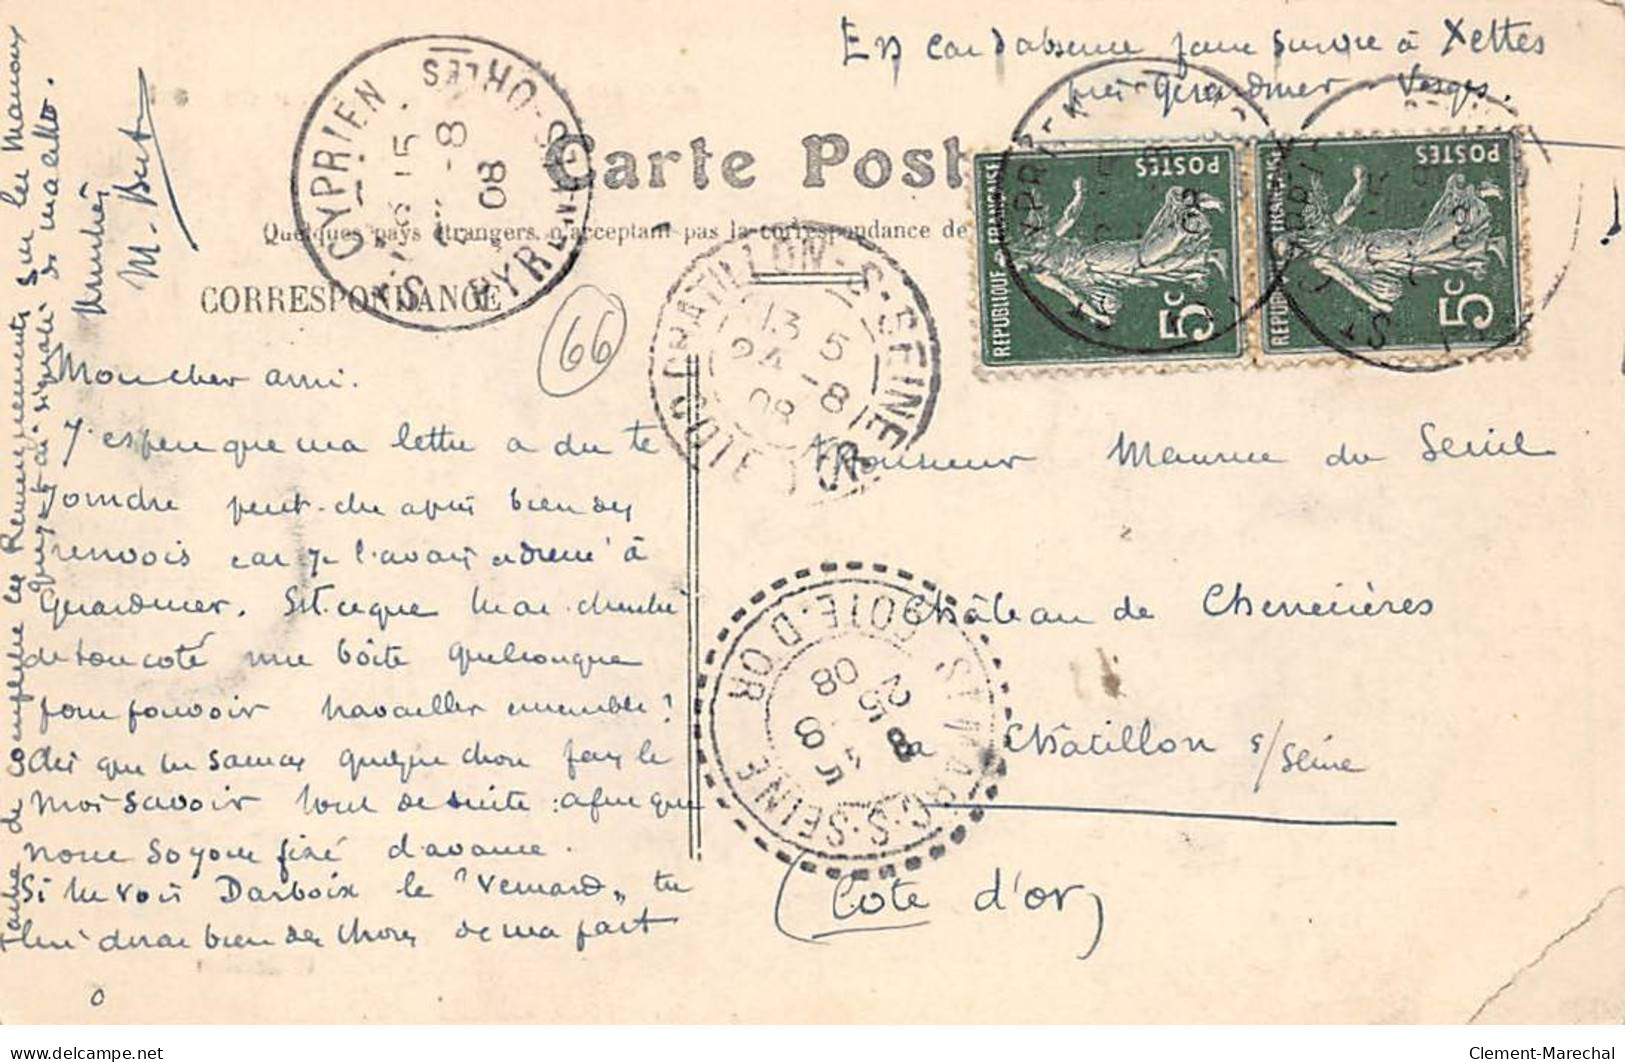 En cas d'absence faire suivre à Xettes
près Gérardmer Vosges.
Carte Post
Quelques pays étrangers n'acceptent pas la correspondance de
CORRESPONDANCE
ST CYPRIEN
PYR.
15
-8
08
66
CHATILLON-S-SEINE
COTE D'OR
13 5
24 -8
08
REPUBLIQUE FRANÇAISE
POSTES
5c
REPUBLIQUE FRANÇAISE
POSTES
5c
Mon cher ami.
J'espère que ma lettre a du te
joindre peut-être après bien des
renvois car je l'avais adressé à
Gérardmer. Est-ce que tu as cherché
de ton coté une bôite quelconque
pour pouvoir travailler ensemble?
dès que tu sauras quelque chose fais le
moi savoir tout de suite : afin que
nous soyons fixé d'avance.
Si tu vois Darboix le "Vernard" tu
lui diras bien des choses de ma part
Tache de compléter les Renseignements sur les Manaux
que je t'ai signalé de maetto.
Amitiés
M. But
Monsieur Maurice du Seuil
Château de Chenecières
à Châtillon s/Seine
(Côte d'or)
ST MARC-S-SEINE
COTE-D'OR
8 15
25 -8
08
Clement-Marechal